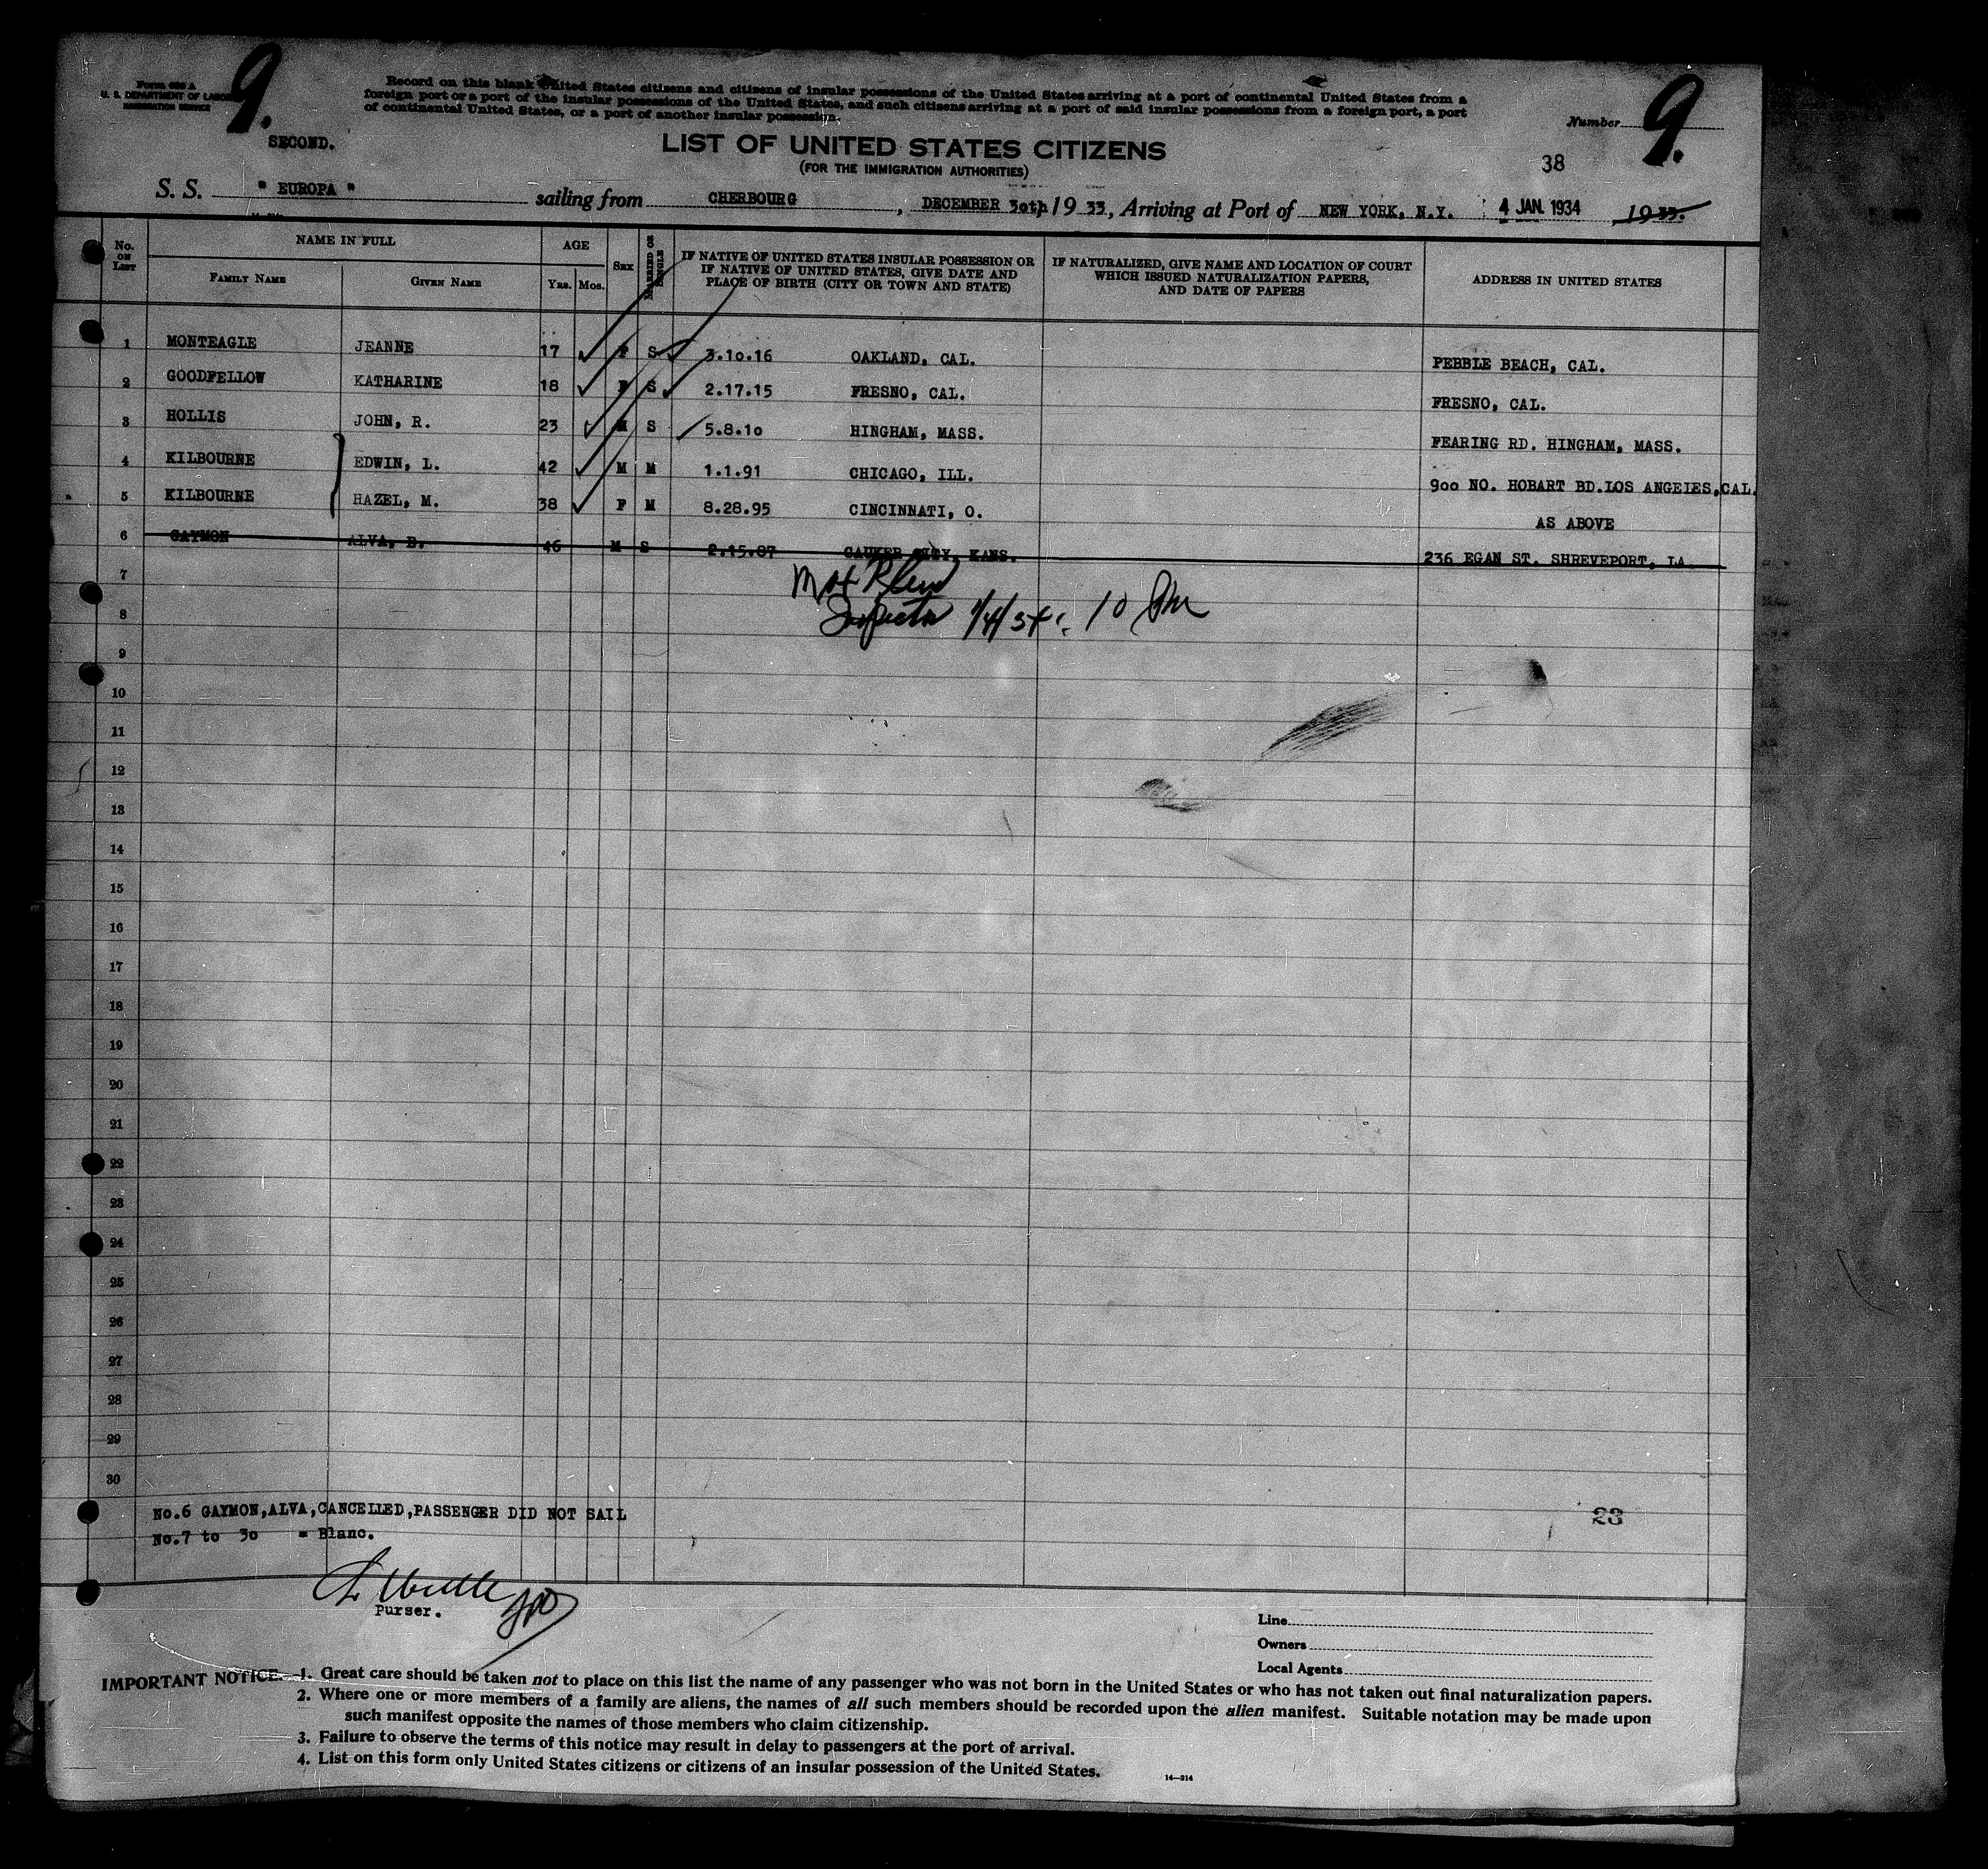 Form 630 A
U. S. DEPARTMENT OF LABOR
IMMIGRATION SERVICE
9.
SECOND.
Record on this blank United States citizens and citizens of insular possessions of the United States arriving at a port of continental United States from a
foreign port or a port of the insular possessions of the United States, and such citizens arriving at a port of said insular possessions from a foreign port, a port
of continental United States, or a port of another insular possession.
Number 9.
LIST OF UNITED STATES CITIZENS
(FOR THE IMMIGRATION AUTHORITIES)
38
S. S. " EUROPA " sailing from CHERBOURG, DECEMBER 30th, 1933, Arriving at Port of NEW YORK, N.Y. 4 JAN. 1934, 1933.
No. ON LIST
NAME IN FULL
FAMILY NAME
GIVEN NAME
AGE
Yrs. Mos.
SEX
MARRIED OR SINGLE
IF NATIVE OF UNITED STATES INSULAR POSSESSION OR
IF NATIVE OF UNITED STATES, GIVE DATE AND
PLACE OF BIRTH (CITY OR TOWN AND STATE)
IF NATURALIZED, GIVE NAME AND LOCATION OF COURT
WHICH ISSUED NATURALIZATION PAPERS,
AND DATE OF PAPERS
ADDRESS IN UNITED STATES
1 MONTEAGLE JEANNE 17 F S 3.10.16 OAKLAND, CAL. PEBBLE BEACH, CAL.
2 GOODFELLOW KATHARINE 18 F S 2.17.15 FRESNO, CAL. FRESNO, CAL.
3 HOLLIS JOHN, R. 23 M S 5.8.10 HINGHAM, MASS. FEARING RD. HINGHAM, MASS.
4 KILBOURNE EDWIN, L. 42 M M 1.1.91 CHICAGO, ILL. 900 NO. HOBART BD.LOS ANGEIES,CAL.
5 KILBOURNE HAZEL, M. 38 F M 8.28.95 CINCINNATI, O. AS ABOVE
6 GAYMON ALVA, B. 46 M S 2.15.87 CAUKER CITY, KANS. 236 EGAN ST. SHREVEPORT, LA.
7
Inspector 1/4/34 10 Pm
8
9
10
11
12
13
14
15
16
17
18
19
20
21
22
23
24
25
26
27
28
29
30
No.6 GAYMON,ALVA,CANCELLED,PASSENGER DID NOT SAIL
23
No.7 to 30 = Blanc.
Purser.
Line
Owners
Local Agents
IMPORTANT NOTICE.—1. Great care should be taken not to place on this list the name of any passenger who was not born in the United States or who has not taken out final naturalization papers.
2. Where one or more members of a family are aliens, the names of all such members should be recorded upon the alien manifest. Suitable notation may be made upon
such manifest opposite the names of those members who claim citizenship.
3. Failure to observe the terms of this notice may result in delay to passengers at the port of arrival.
4. List on this form only United States citizens or citizens of an insular possession of the United States.
14—214